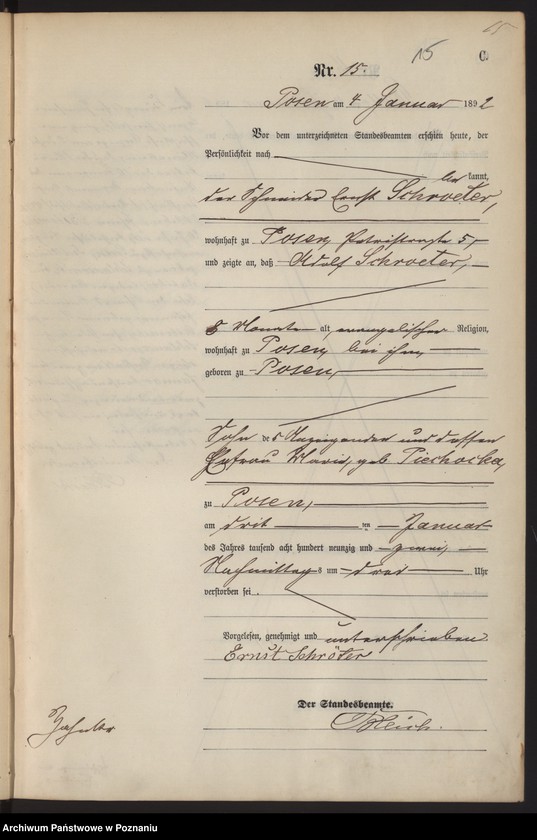 15
15
C.
Nr. 15.
Posen am 4 Januar 1892
Vor dem unterzeichneten Standesbeamten erschien heute, der
Persönlichkeit nach
bekannt,
der Schneider Ernst Schroeter,
wohnhaft zu Posen, Petristraße 5,
und zeigte an, daß Adolf Schroeter,
8 Monate alt, evangelischer Religion,
wohnhaft zu Posen, bei ihm,
geboren zu Posen,
Sohn des Anzeigenden und dessen
Ehefrau Marie, geb Piechocka,
zu Posen,
am drit ten Januar
des Jahres tausend acht hundert neunzig und zwei,
Nachmittags um drei Uhr
verstorben sei.
Vorgelesen, genehmigt und unterschrieben
Ernst Schröter
Der Standesbeamte.
Archiwum Państwowe w Poznaniu